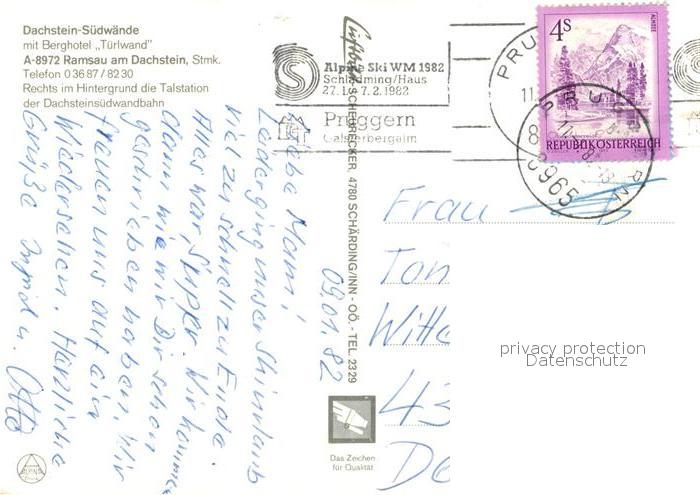 Dachstein-Südwände
mit Berghotel „Türlwand"
A-8972 Ramsau am Dachstein, Stmk.
Telefon 0 36 87 / 82 30
Rechts im Hintergrund die Talstation
der Dachsteinsüdwandbahn
Alpine Ski WM 1982
Schladming/Haus
27.1. 7.2.1982
Pruggern
Galsterbergalm
4s
ALMSEE
REPUBLIK ÖSTERREICH
8965
SCHEURECKER, 4780 SCHÄRDING/INN - OÖ. - TEL. 23 29
09.01.82
Liebe Mami
Leider ging unser Skiurlaub
viel zu schnell zu Ende.
Alles war Super. Wir kommen
dann wie wir Dir schon
geschrieben haben. Wir
freuen uns auf ein
Wiedersehen. Herzliche
Grüße Ingrid u. Otto
Frau
Ton
Witte
43
De
Das Zeichen
für Qualität
ALPINE
privacy protection
Datenschutz